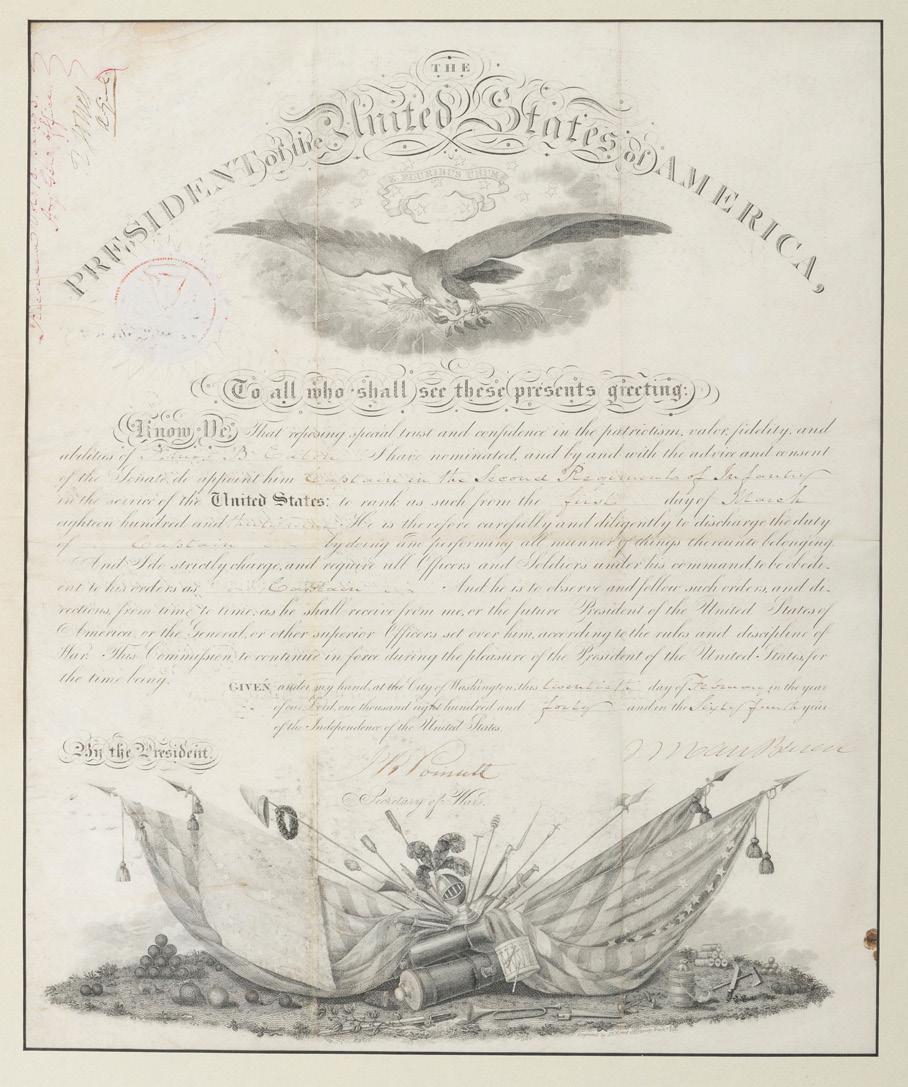 THE
PRESIDENT of the United States of AMERICA,
E PLURIBUS UNUM
To all who shall see these presents greeting:
Know Ye, That reposing special trust and confidence in the patriotism, valor, fidelity, and
abilities of B. I have nominated, and by and with the advice and consent
of the Senate, do appoint him Captain in the Second Regiment of Infantry
in the service of the United States: to rank as such from the first day of March
eighteen hundred and He is therefore carefully and diligently to discharge the duty
of Captain by doing and performing all manner of things thereunto belonging.
And I do strictly charge, and require all Officers and Soldiers under his command to be obedi-
ent to his orders as Captain And he is to observe and follow such orders, and di-
rections, from time to time, as he shall receive from me, or the future President of the United States of
America, or the General, or other superior Officers set over him, according to the rules and discipline of
War. This Commission to continue in force during the pleasure of the President of the United States, for
the time being.
GIVEN under my hand, at the City of Washington, this twentieth day of February in the year
of our Lord, one thousand eight hundred and forty and in the Sixty fourth year
of the Independence of the United States.
By the President.
M Van Buren
J R Poinsett
Secretary of War.